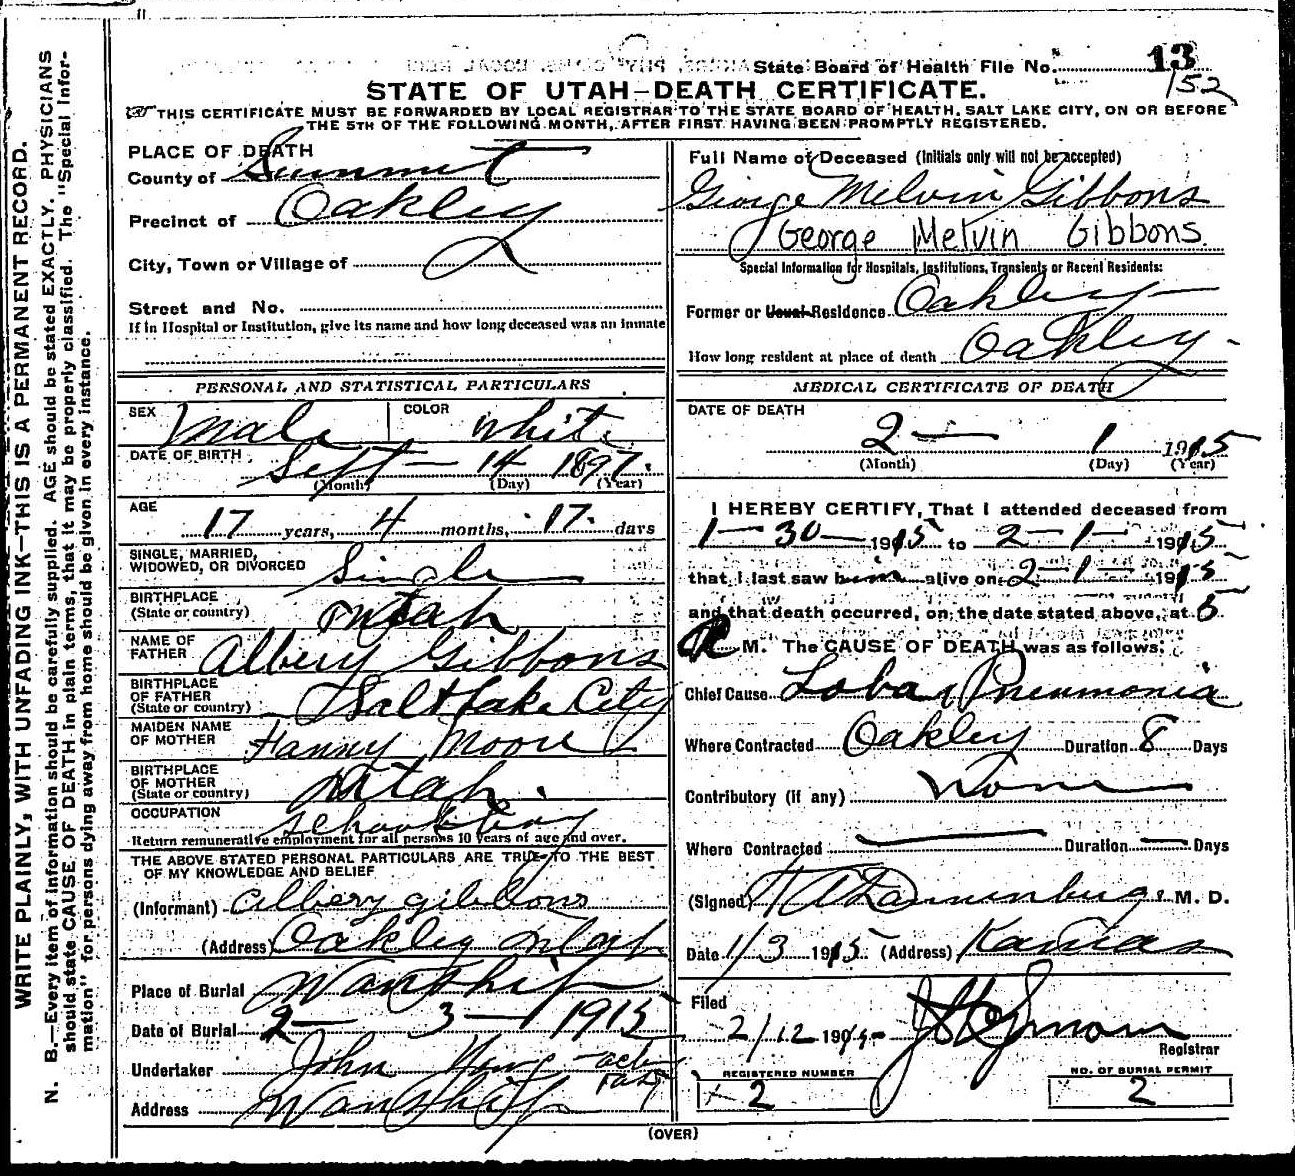 State Board of Health File No. 13
152
STATE OF UTAH—DEATH CERTIFICATE.
THIS CERTIFICATE MUST BE FORWARDED BY LOCAL REGISTRAR TO THE STATE BOARD OF HEALTH, SALT LAKE CITY, ON OR BEFORE
THE 5TH OF THE FOLLOWING MONTH, AFTER FIRST HAVING BEEN PROMPTLY REGISTERED.
WRITE PLAINLY, WITH UNFADING INK—THIS IS A PERMANENT RECORD.
N. B.—Every item of information should be carefully supplied. AGE should be stated EXACTLY. PHYSICIANS
should state CAUSE OF DEATH in plain terms, that it may be properly classified. The "Special Infor-
mation" for persons dying away from home should be given in every instance.
PLACE OF DEATH
County of Summit
Precinct of Oakley
City, Town or Village of
Street and No.
If in Hospital or Institution, give its name and how long deceased was an inmate
PERSONAL AND STATISTICAL PARTICULARS
SEX Male COLOR White
DATE OF BIRTH Sept— 14 1897.
(Month) (Day) (Year)
AGE
17 years, 4 months, 17. days
SINGLE, MARRIED,
WIDOWED, OR DIVORCED Single
BIRTHPLACE
(State or country) Utah
NAME OF
FATHER Albery Gibbons
BIRTHPLACE
OF FATHER
(State or country) Salt Lake City
MAIDEN NAME
OF MOTHER Fanny Moore
BIRTHPLACE
OF MOTHER
(State or country) Utah.
OCCUPATION School boy
Return remunerative employment for all persons 10 years of age and over.
THE ABOVE STATED PERSONAL PARTICULARS ARE TRUE TO THE BEST
OF MY KNOWLEDGE AND BELIEF
(Informant) Albery gibbons
(Address) Oakley Utah
Place of Burial Wanship
Date of Burial 2— 3— 1915
Undertaker John
Address Wanship
Full Name of Deceased (Initials only will not be accepted)
George Melvin Gibbons
George Melvin Gibbons.
Special Information for Hospitals, Institutions, Transients or Recent Residents:
Former or Usual Residence Oakley
How long resident at place of death Oakley
MEDICAL CERTIFICATE OF DEATH
DATE OF DEATH
2— 1 1915
(Month) (Day) (Year)
I HEREBY CERTIFY, That I attended deceased from
1—30— 1915 to 2—1— 1915
that I last saw him alive on 2—1— 1915
and that death occurred, on the date stated above, at 5
M. The CAUSE OF DEATH was as follows:
Chief Cause Lobar Pneumonia
Where Contracted Oakley Duration 8 Days
Contributory (if any) None
Where Contracted — Duration — Days
(Signed) M. D.
Date 1/3 1915 (Address) Kamas
Filed
2/12 1915
Registrar
REGISTERED NUMBER
2
NO. OF BURIAL PERMIT
2
(OVER)